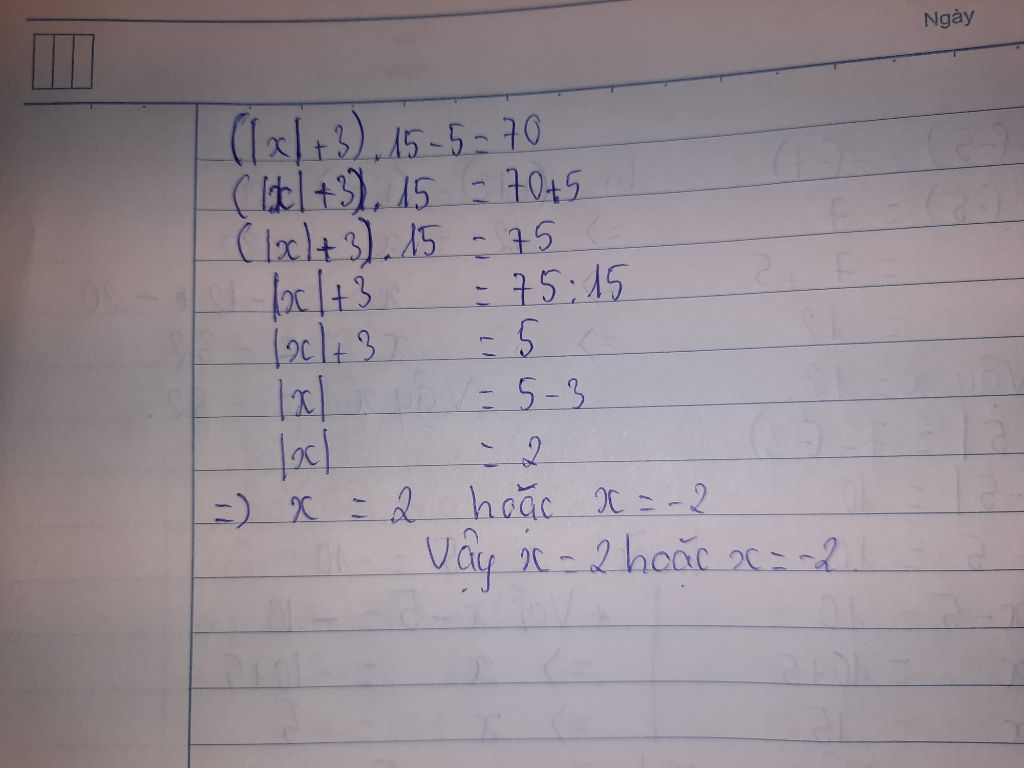 Ngày
(|x|+3).15-5=70
(|x|+3).15 = 70+5
(|x|+3).15 = 75
|x|+3 = 75:15
|x|+3 = 5
|x| = 5-3
|x| = 2
=> x = 2 hoặc x = -2
Vậy x = 2 hoặc x = -2